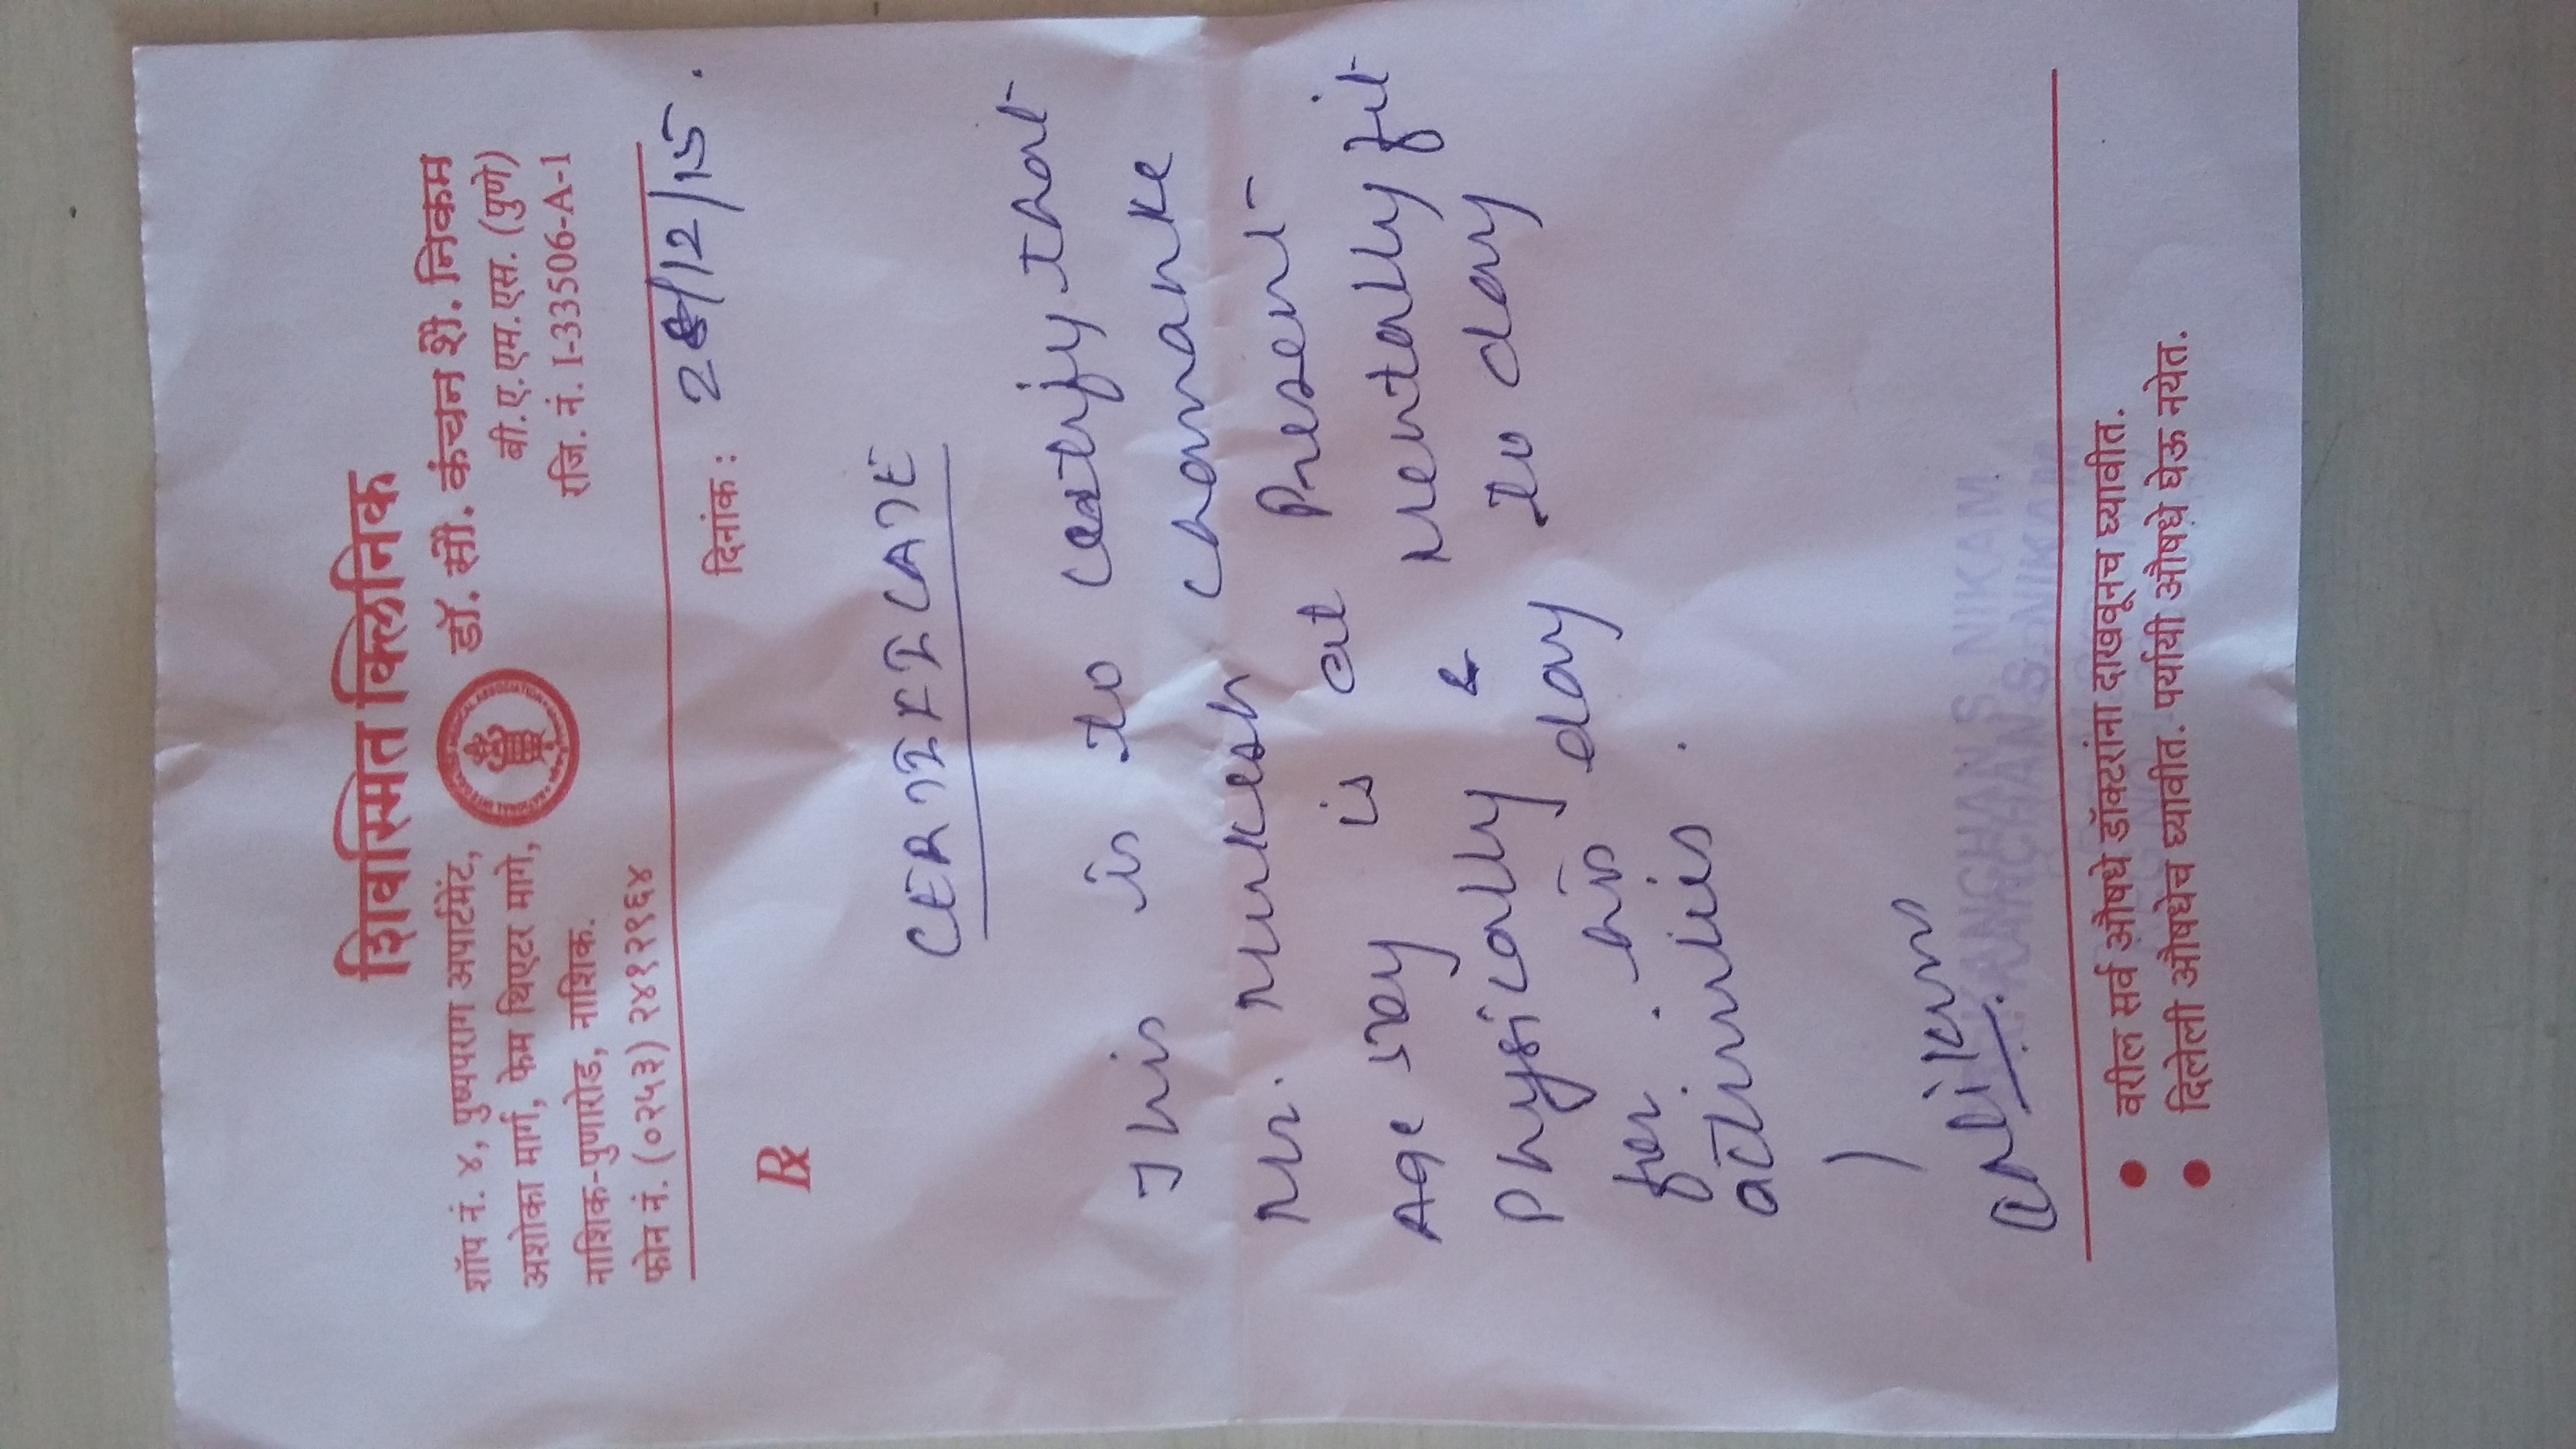 शिवस्मित क्लिनिक
शॉप नं. ४, पुष्पपराग अपार्टमेंट,
अशोका मार्ग, फेम थिएटर मागे,
नाशिक-पुणारोड, नाशिक.
फोन नं. (०२५३) २४१२९६४
डॉ. सौ. कंचन शै. निकम
बी.ए.एम.एस. (पुणे)
रजि. नं. I-33506-A-1
दिनांक : /12/15.
℞
CERTIFICATE
This is to certify that
Mr. Mukesh Chamanke
Age is at Present
Physically & Mentally fit
for his day to day
activities.
Nikam
KANCHAN S NIKAM
KANCHAN S NIKAM
● वरील सर्व औषधे डॉक्टरांना दाखवूनच घ्यावीत.
● दिलेली औषधेच घ्यावीत. पर्यायी औषधे घेऊ नयेत.